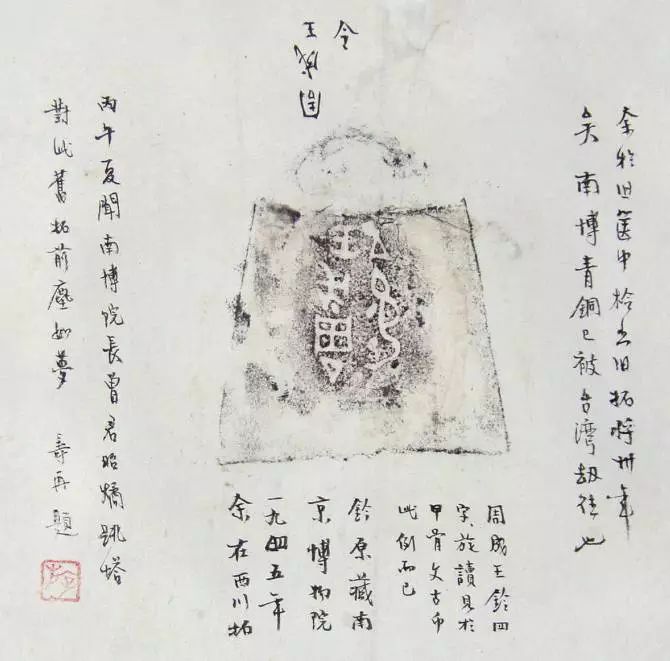 余於旧篋中检出旧拓將卅年
矣南博青銅已被台灣劫往也
令
王周
周成王鈴四
字旋讀見於
甲骨文古币
此例而已
鈴原藏南
京博物院
一九四五年
余在西川拓
丙午夏聞南博院長曾君昭燏跳塔
對此舊拓前塵如夢 壽再題